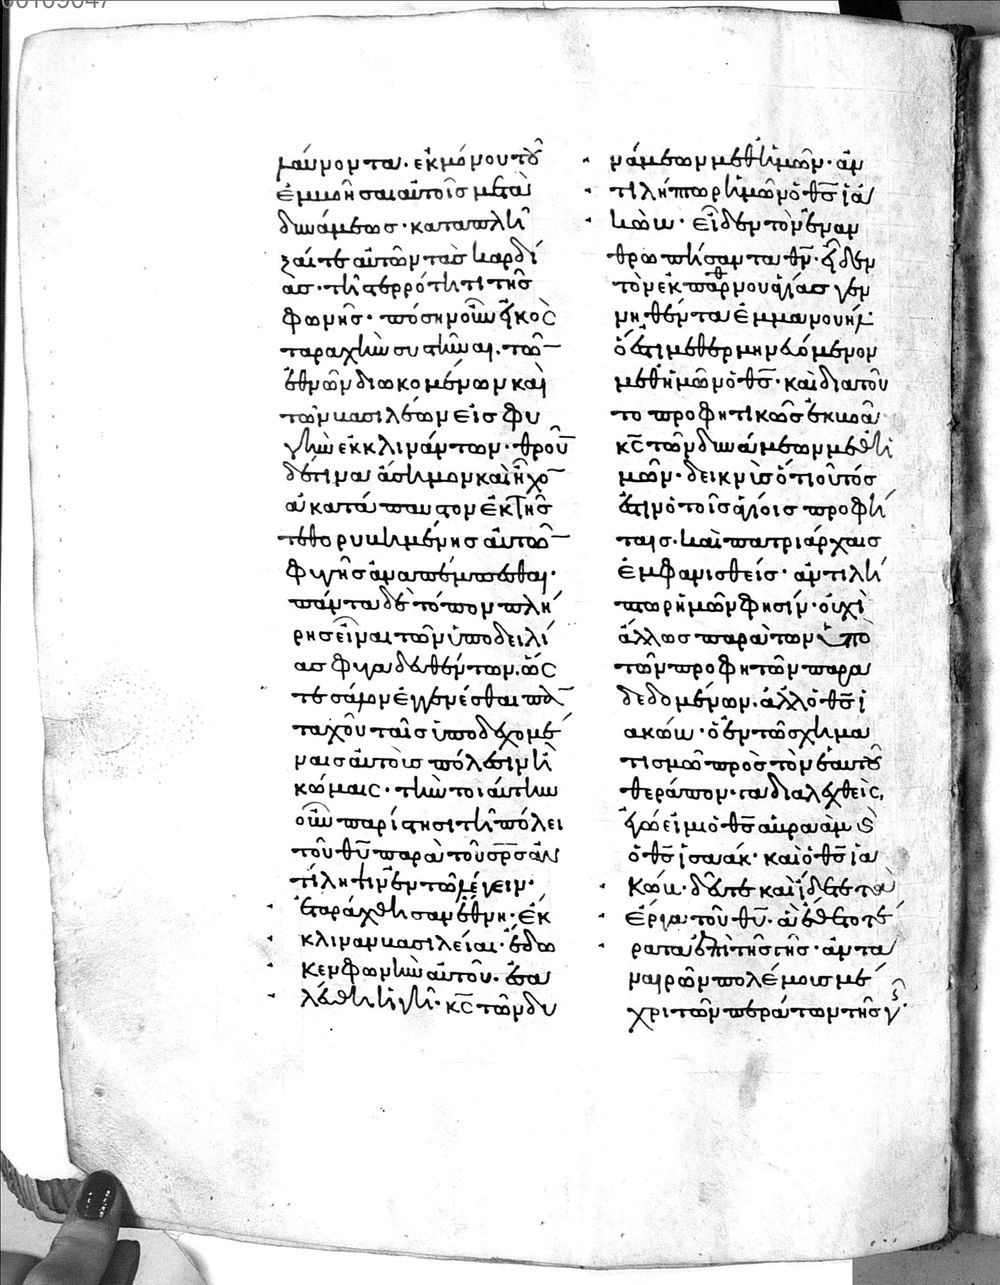 μαίνοντα. ἐκ μόνου τοῦ
ἐμμεῖναι αὐτοῖς μετὰ
δυνάμεως. καταπλῆ
ξαί τε αὐτῶν τὰς καρδί
ας. τῇ στερρότητι τῆς
φωνῆς. πόσην οὖν εἰκὸς
ταραχὴν συστῆναι. τῶ
ἐθνῶν διωκομένων καὶ
τῶν βασιλέων εἰς φυ
γὴν ἐκκλινάντων. θροῦ
δέ τινα ἄσημον καὶ ἦχο
ἀκατάπαυστον ἐκ τῆς
τεθορυβημένης αὐτῶ
φυγῆς ἀναπέμπεσθαι.
πάντα δὲ τόπον πλή
ρης εἶναι τῶν ὑπὸ δειλί
ας φυγαδευθέντων. ὥς
τε σάλον ἐγγενέσθαι πα
ταχοῦ ταῖς ὑποδεχομέ
ναις αὐτοὺς πόλεσιν ἢ
κώμαις. τὴν τοιαύτην
οὖν παρίστησι τῇ πόλει
τοῦ θυ παρὰ τοῦ σρσ ἀν
τίληψιν ἐν τῶ λέγειν.
ἐταράχθησαν ἔθνη. ἔκ
κλιναν βασιλεῖαι. ἔδω
κεν φωνὴν αὐτοῦ. ἐσα
λεύθη ἡ γῆ. κς τῶν δυ
νάμεων μεθ ἡμῶν. ἀν
τιλήπτωρ ἡμῶν ὁ θς ἰα
κώβ. εἶδεν τὸν ἔναν
θρωπήσαντα θν. εἶδεν
τὸν ἐκ παρνου ἁγίας γεν
νηθέντα ἐμμανουήλ.
ὅ ἐστι μεθερμηνευόμενον
μεθ ἡμῶν ὁ θς. καὶ διὰ τοῦ
το προφητικῶς ἐκβοᾶ.
κς τῶν δυνάμεων μεθ ἡ
μῶν. δεικνὺς ὅτι οὗτός
ἐστιν ὁ τοῖς ἁγίοις προφή
ταις. καὶ πατριάρχαις
ἐμφανισθείς. ἀντιλή
πτωρ ἡμῶν φησίν. οὐχὶ
ἄλλος παρὰ τῶν ὑπὸ
τῶν προφητῶν παρα
δεδομένων. ἀλλ ὁ θς ἰ
ακώβ. ὁ ἐν τῶ χρημα
τισμῶ πρὸς τὸν ἑαυτοῦ
θεράποντα διαλεχθείς.
ἐγώ εἰμι ὁ θς αὐραὰμ (καὶ)
ὁ θς ἰσαάκ. καὶ ὁ θς ἰα
κώβ. δεῦτε καὶ ἴδετε τὰ
ἔργα τοῦ θυ. ἃ ἔθετο τέ
ρατα ἐπὶ τῆς γῆς. ἀντα
ναιρῶν πολέμους μέ
χρι τῶν περάτων τῆς γῆς.